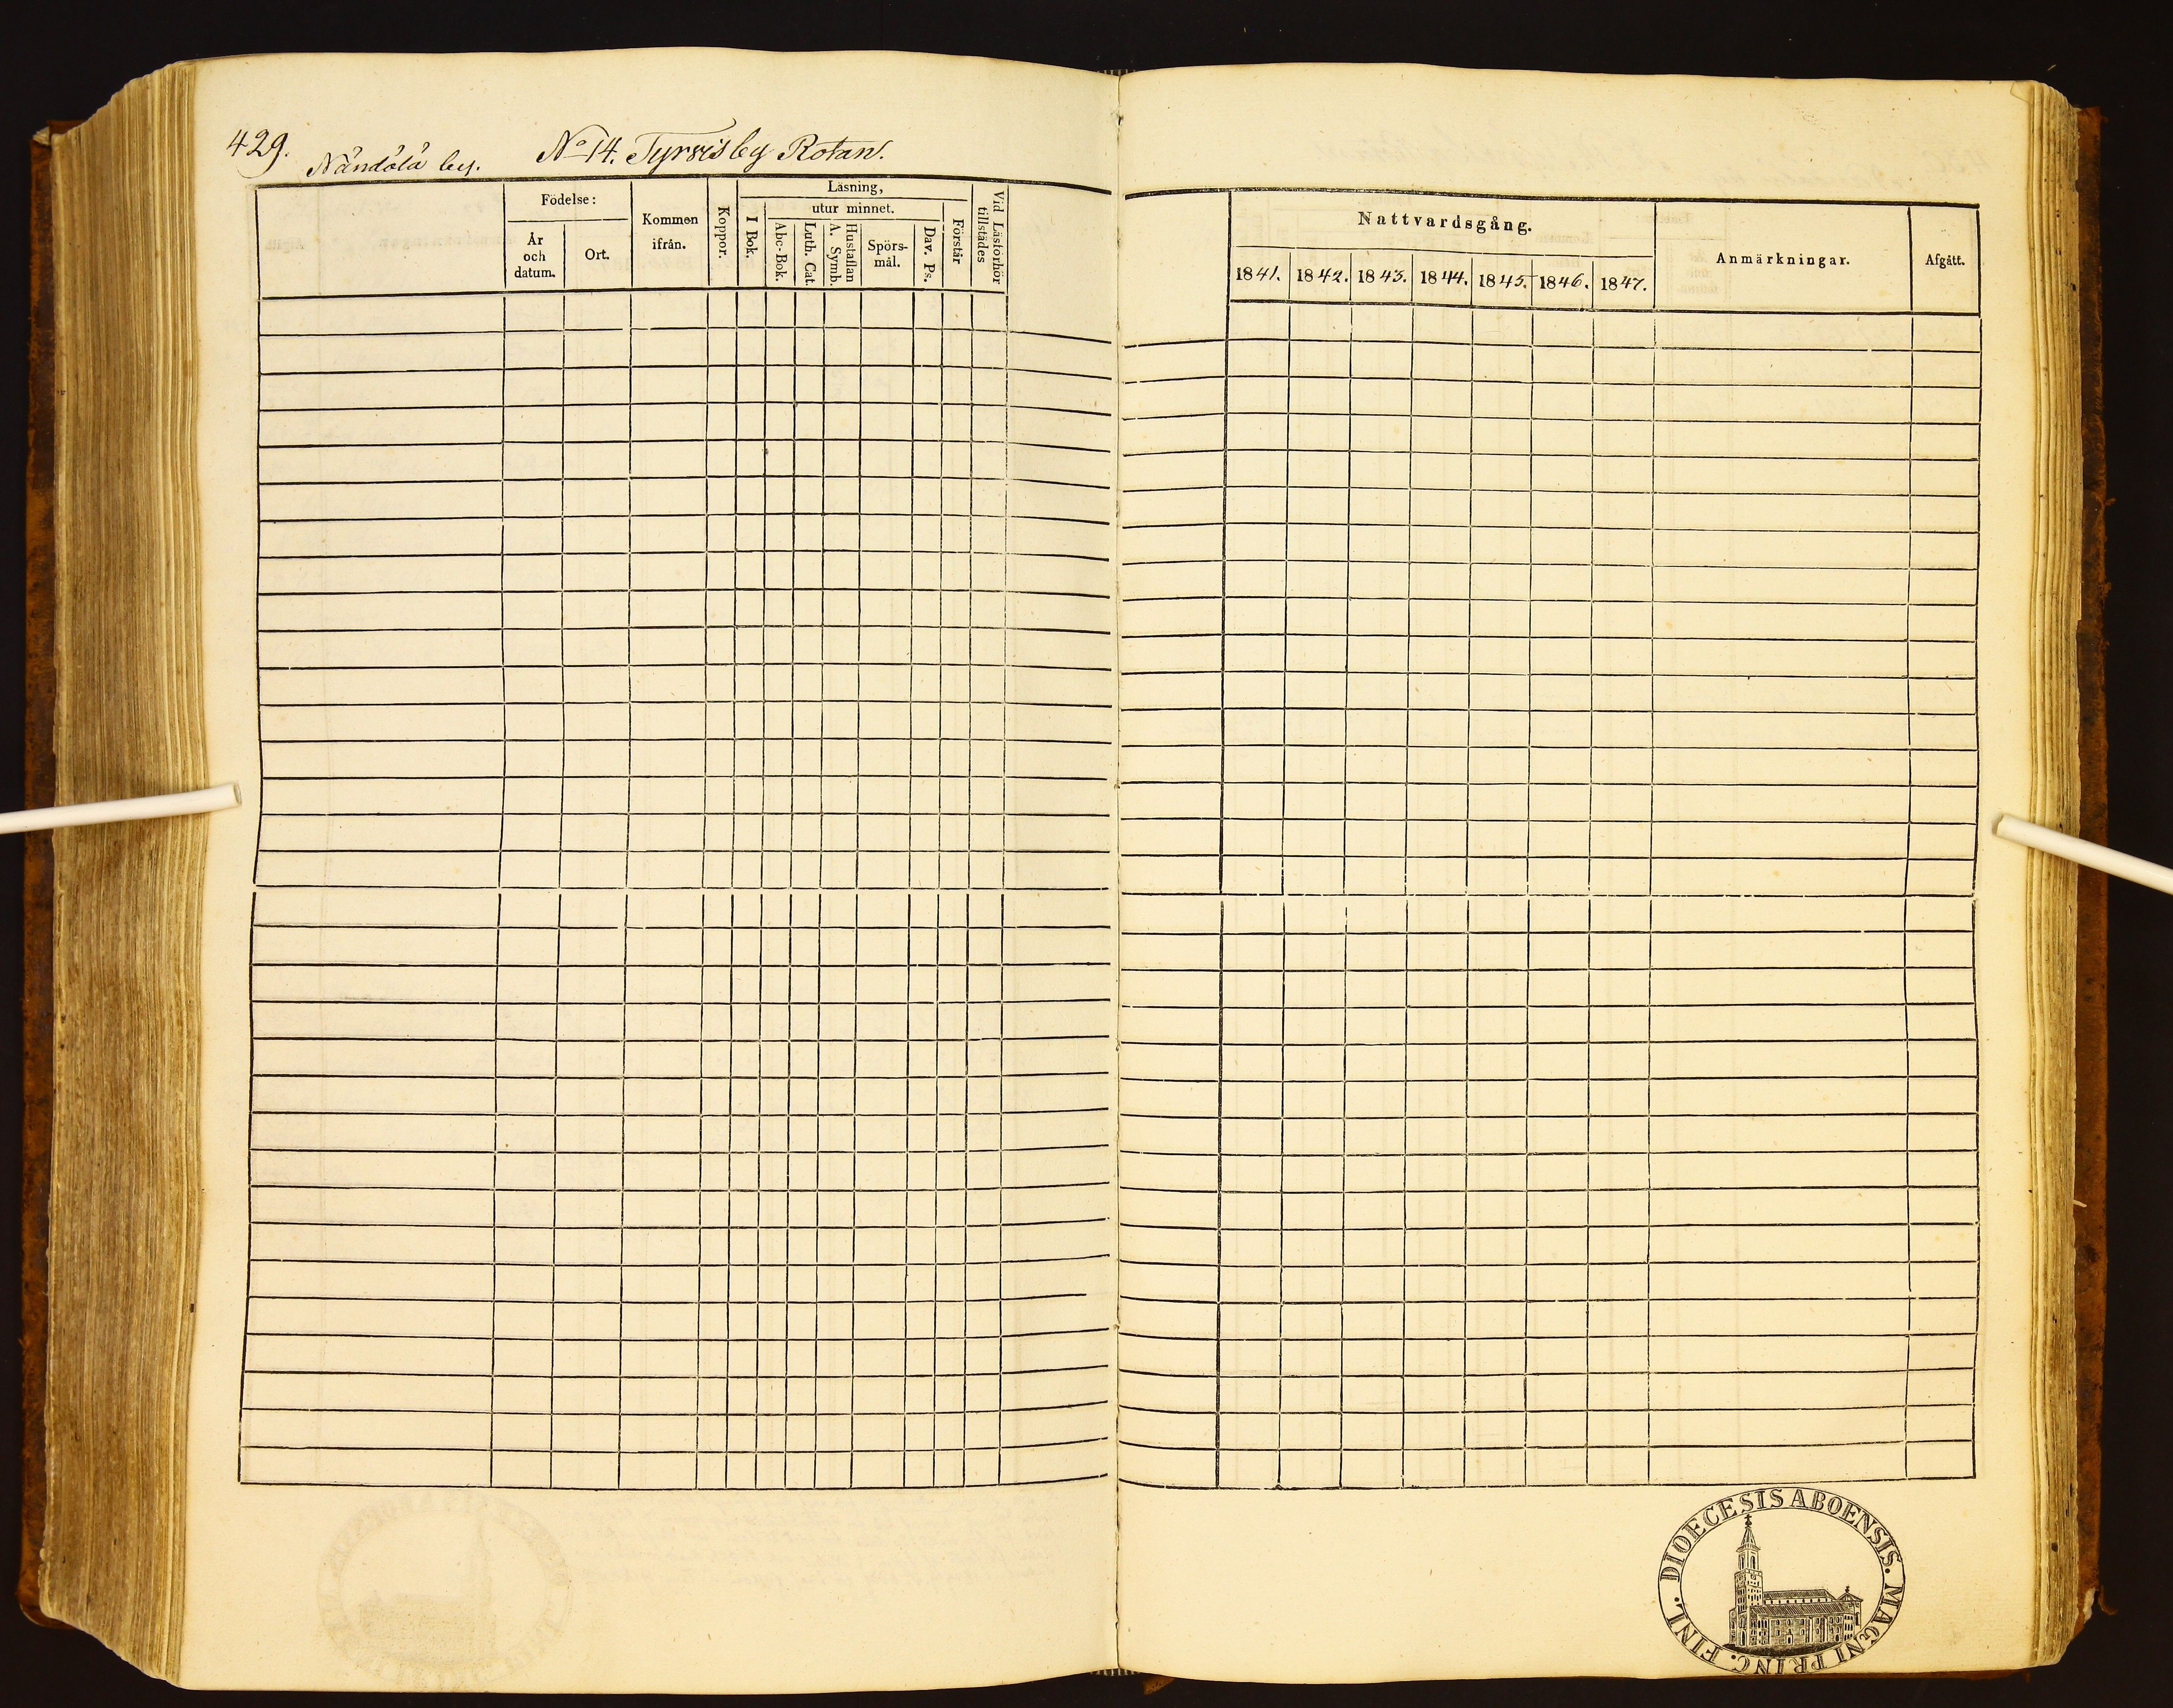 429.
Nändölä by.
No 14. Tyrvis by Rotan.
Födelse:
År och datum.
Ort.
Kommen ifrån.
Koppor.
Läsning,
I Bok.
utur minnet.
Abc-Bok.
Luth. Cat.
Hustaflan A. Symb.
Spörs-mål.
Dav. Ps.
Förstår
Vid Läsförhör tillstädes
Nattvardsgång.
1841. 1842. 1843. 1844. 1845. 1846. 1847.
Anmärkningar.
Afgått.
DIOECESIS ABOENSIS. MAGNI PRINC. FINL.